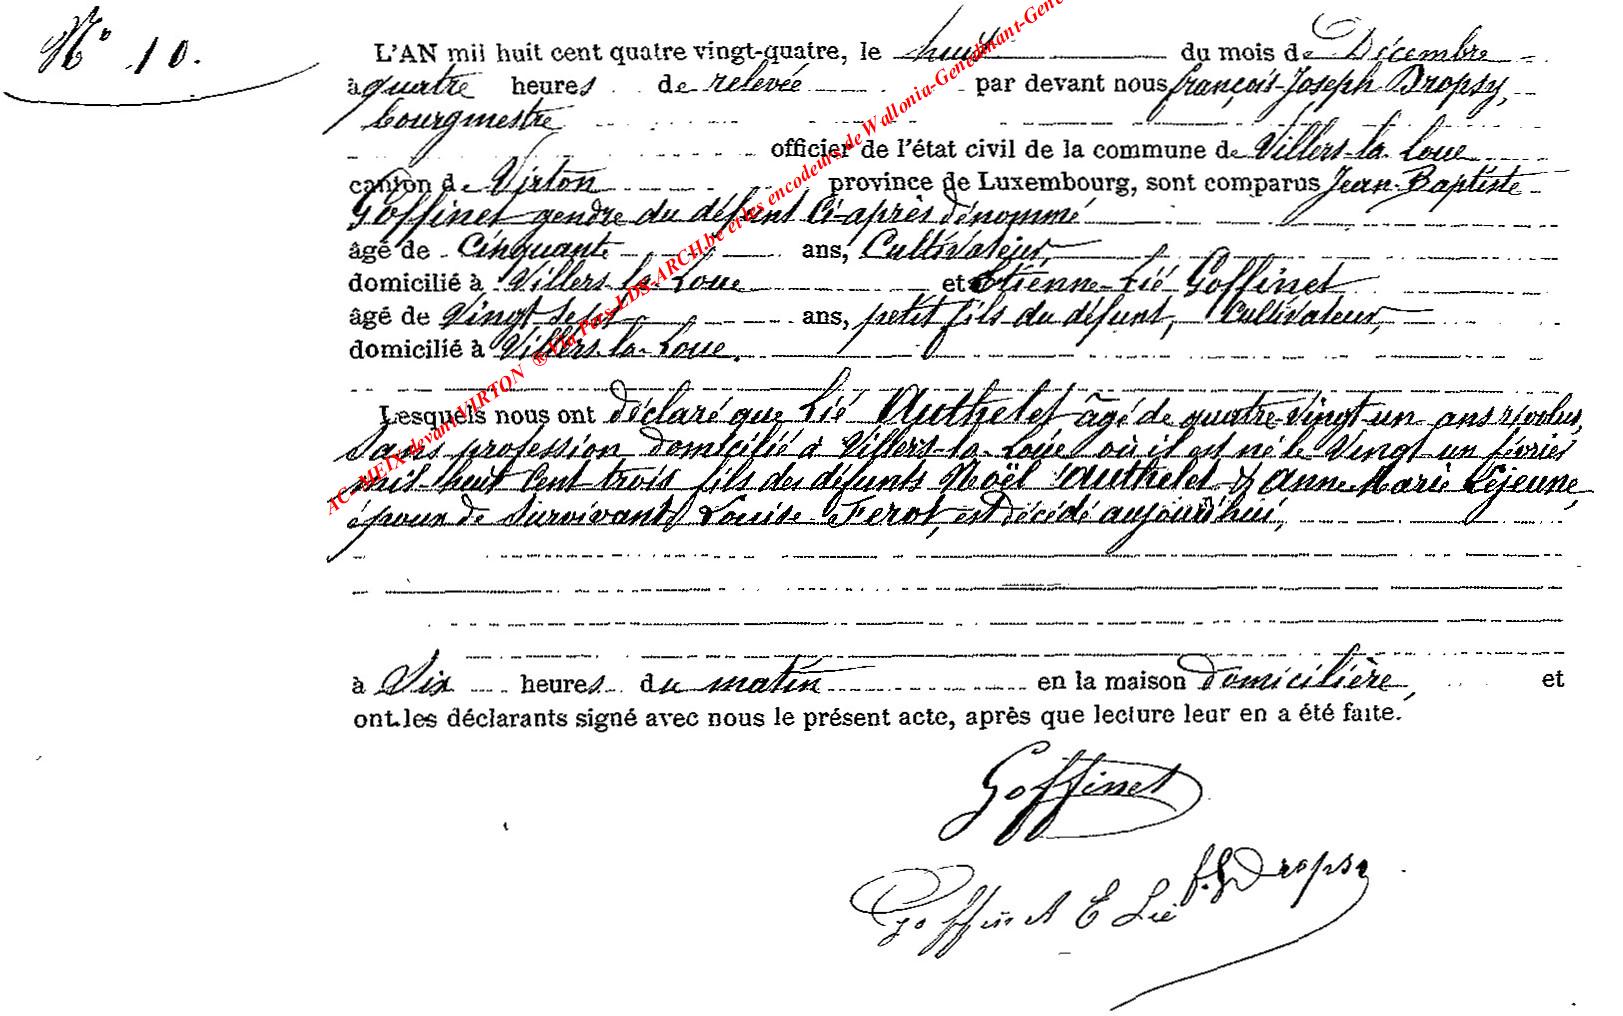 N° 10.
L'AN mil huit cent quatre vingt-quatre, le huit du mois de Décembre
à quatre heures de relevée par devant nous françois-Joseph Dropsy,
bourgmestre
officier de l'état civil de la commune de Villers-la-Loue
canton de Virton province de Luxembourg, sont comparus Jean-Baptiste
Goffinet gendre du défunt ci-après dénommé
âgé de cinquante ans, Cultivateur,
domicilié à Villers-la-Loue et Etienne-Lié Goffinet
âgé de vingt sept ans, petit fils du défunt, Cultivateur,
domicilié à Villers-la-Loue.
Lesquels nous ont déclaré que Lié Authelet âgé de quatre-vingt-un ans révolus,
sans profession domicilié à Villers-la-Loue où il est né le vingt-un février
mil-huit cent trois fils des défunts Noël Authelet & Anne Marie Lejeune,
époux de survivant Louise Ferot, est décédé aujourd'hui,
à six heures du matin en la maison domicilière, et
ont les déclarants signé avec nous le présent acte, après que lecture leur en a été faite.
Goffinet
f.J Dropsy
Goffinet E Lié
AC-MEIX devant VIRTON ® Via Pers-LDS-ARCH.be et les encodeurs de Wallonia-Genedinant-Gene